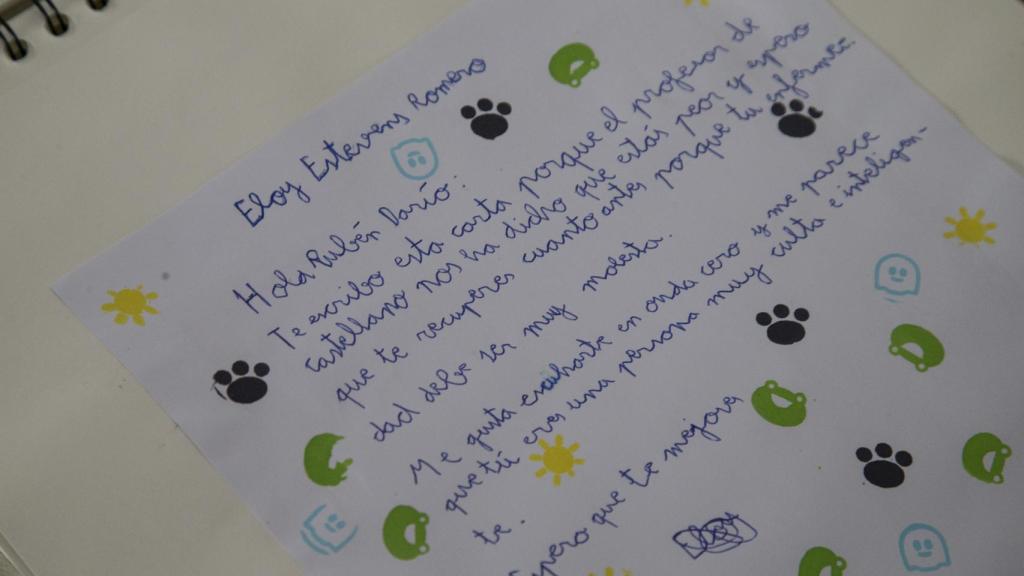 Eloy Estevens Romero
Hola Rubén Darío:
Te escribo esta carta porque el profesor de
castellano nos ha dicho que estás peor y espero
que te recuperes cuanto antes porque tu enferme-
dad debe ser muy molesta.
Me gusta escuharte en onda cero y me parece
que tú eres una persona muy culta e inteligen-
te.
Espero que te mejores
Eloy